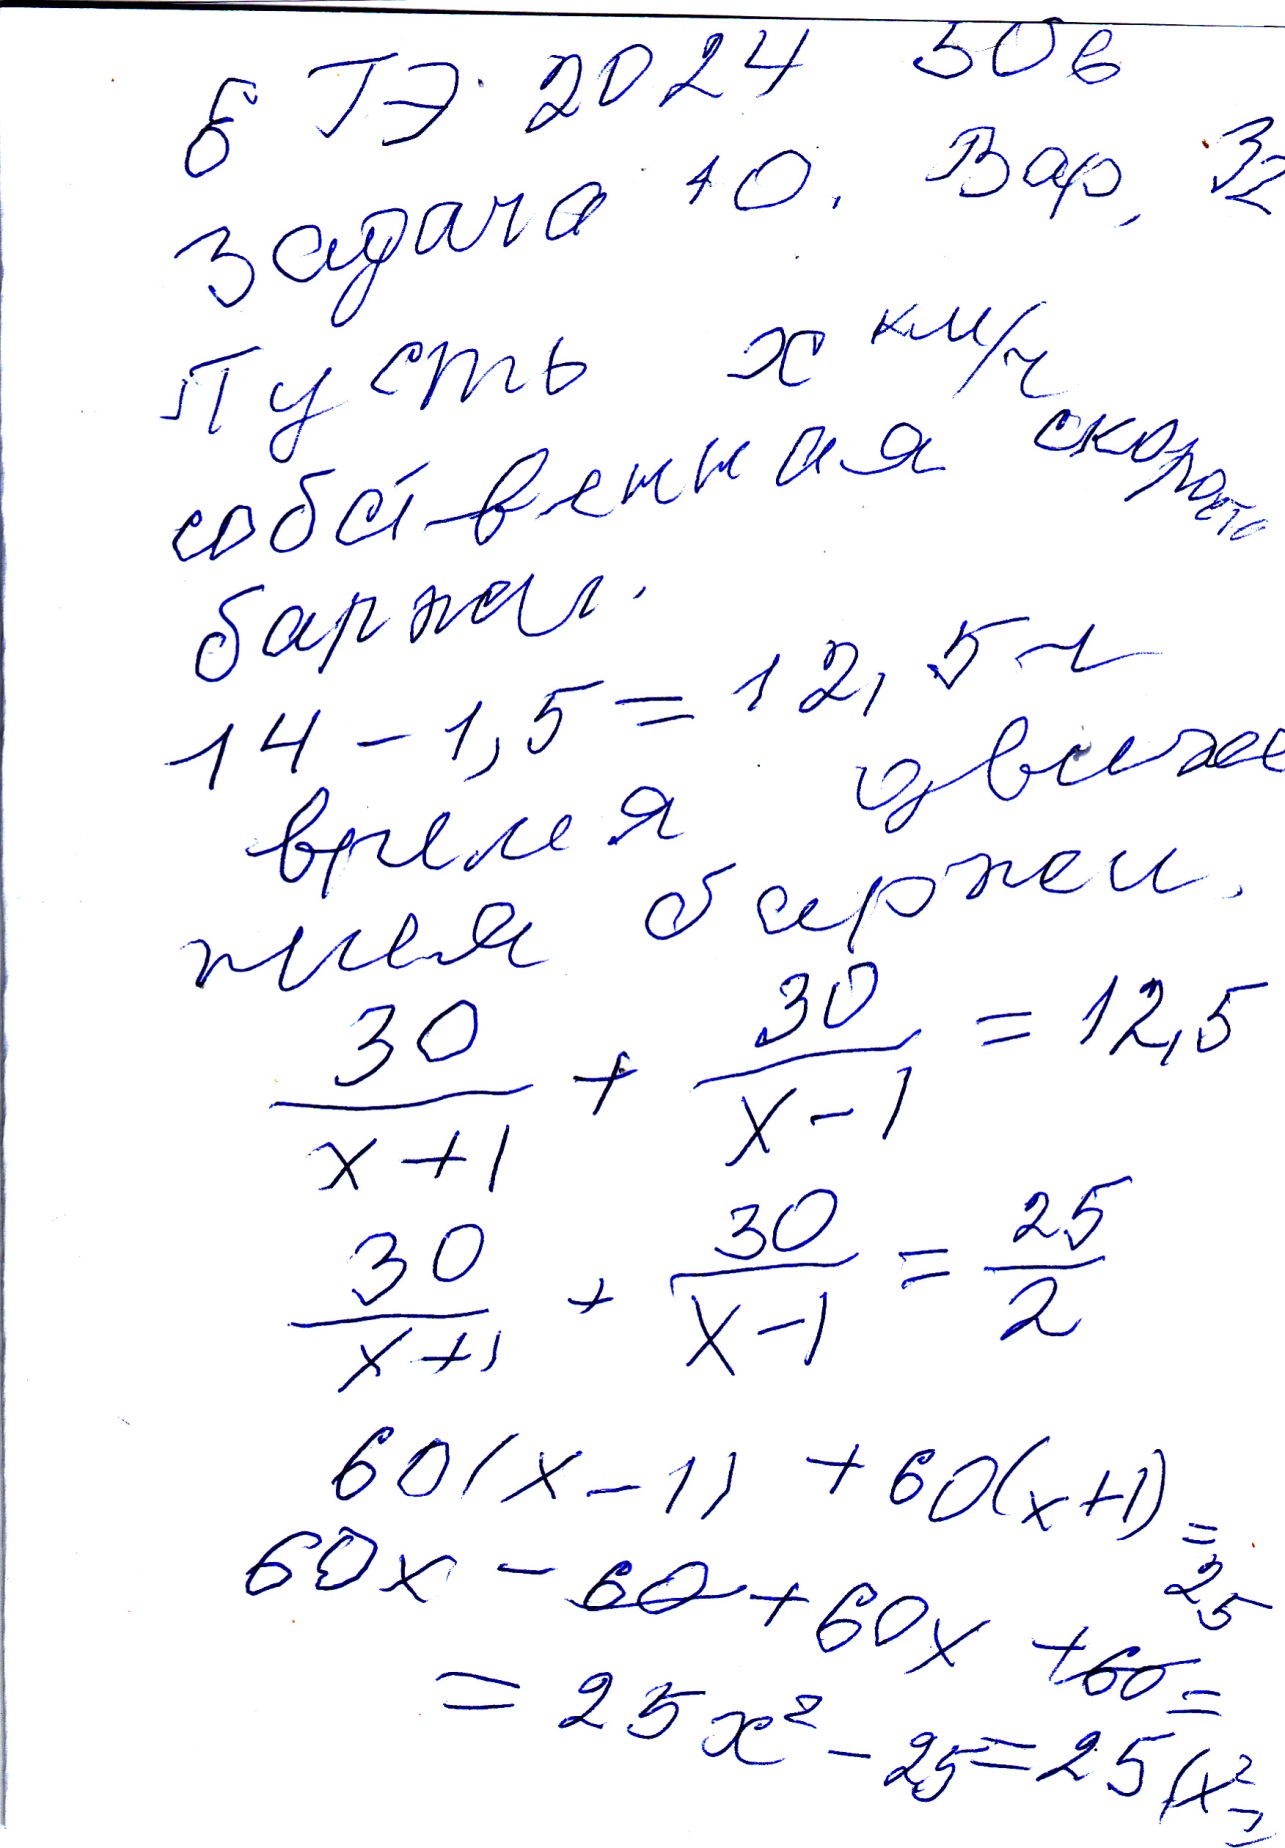 БТЭ. 2024 50в
Задача 10. Вар. 32
Пусть x км/ч
собственная скорость
баржи.
14 - 1,5 = 12,5 ч
время движе
ния баржи.
30/(x+1) + 30/(x-1) = 12,5
30/(x+1) + 30/(x-1) = 25/2
60(x-1) + 60(x+1) =
25
60x - 60 + 60x + 60 =
= 25x² - 25 = 25(x²-